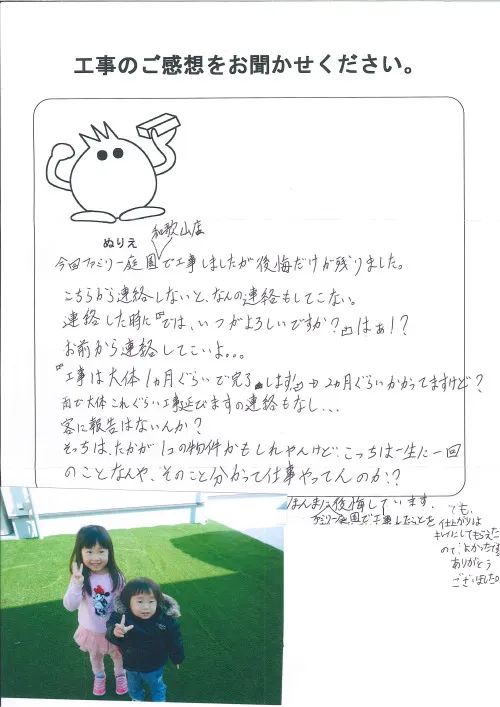 工事のご感想をお聞かせください。
ぬりえ
和歌山店
今回ファミリー庭園で工事しましたが後悔だけが残りました。
こちらから連絡しないと、なんの連絡もしてこない。
連絡した時に『では、いつがよろしいですか?』はぁ!?
お前から連絡してこいよ。。。
『工事は大体1ヵ月ぐらいで完了します!』 2ヵ月ぐらいかかってますけど?
雨で大体これぐらい工事延びますの連絡もなし...
客に報告はないんか?
そっちは、たかが1つの物件かもしれやんけど、こっちは一生に一回
のことなんや、そのこと分かって仕事やってんのか!?
ほんまに後悔しています。
ファミリー庭園で工事したことを
でも、
仕上がりは
キレイにしてもらえた
ので、よかったです
ありがとう
ございました。